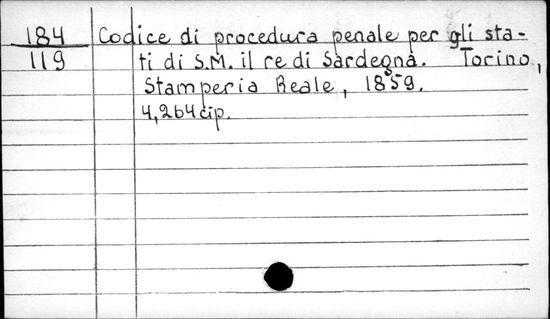 184 Codice di procedura penale per gli sta-
119 ti di S.M. il re di Sardegna. Torino,
Stamperia Reale, 1859.
4,264 cip.